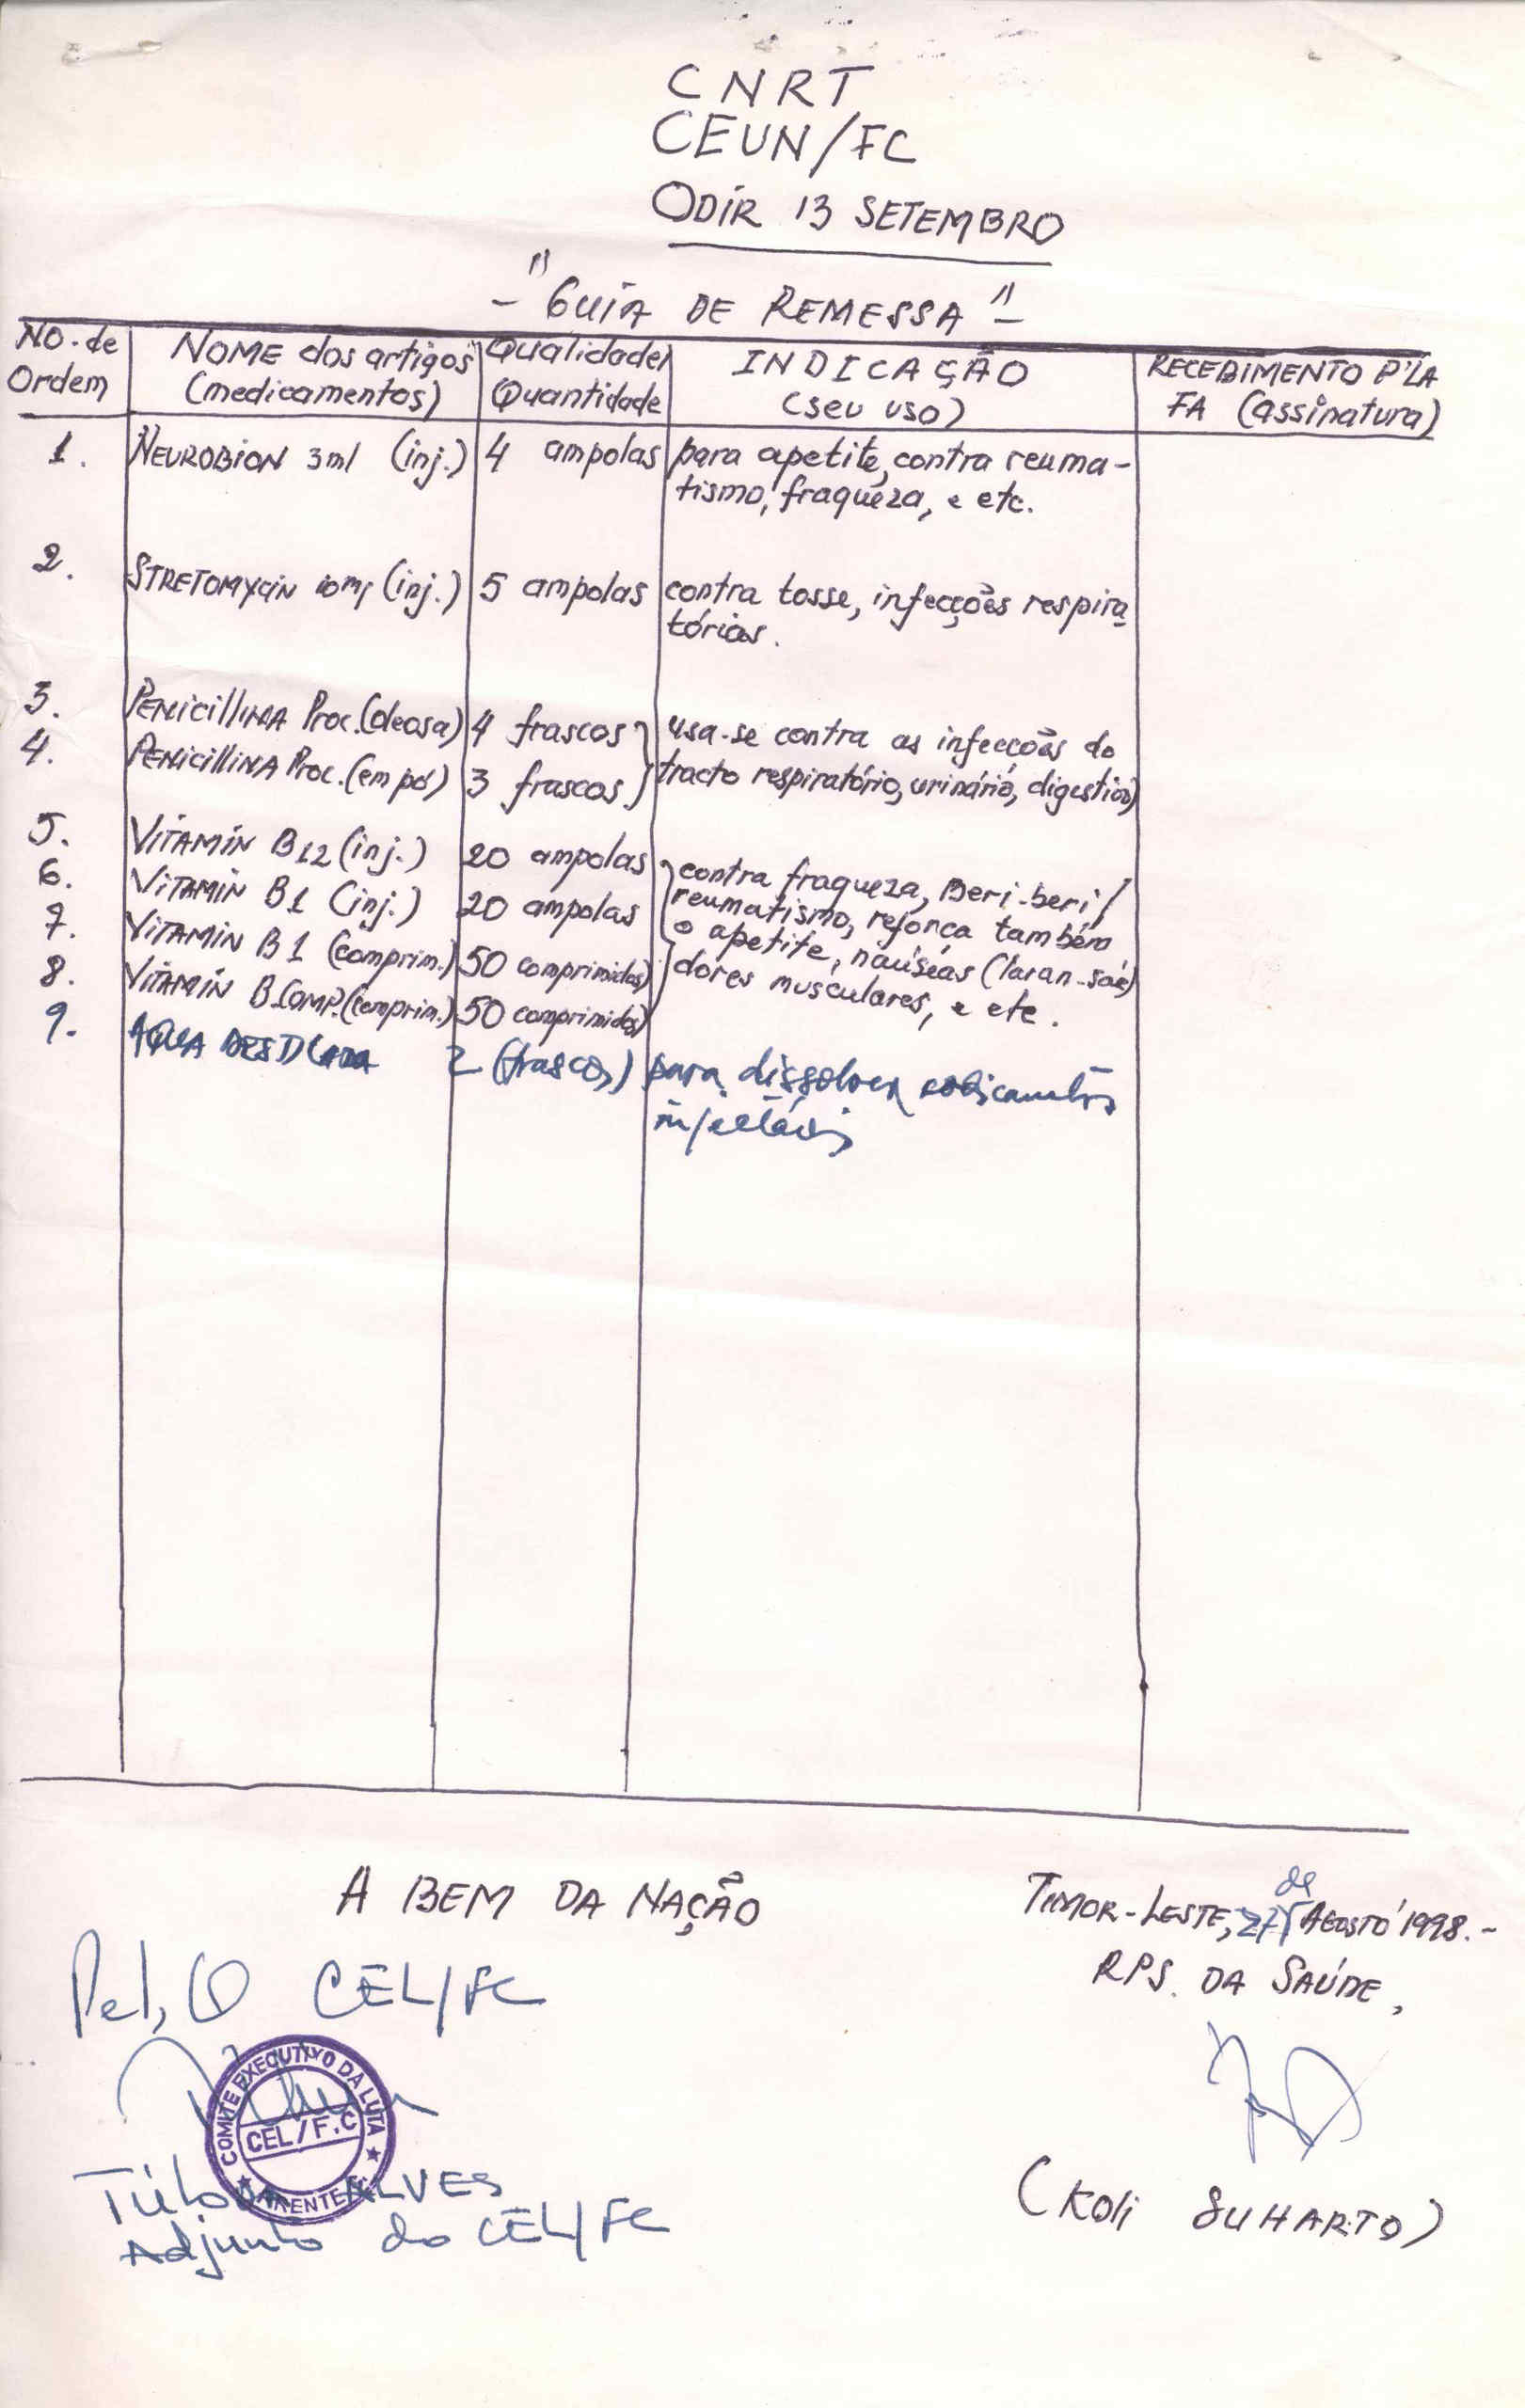 CNRT
CEUN/FC
ODIR 13 SETEMBRO
- "GUIA DE REMESSA" -
NO. de Ordem
NOME dos artigos (medicamentos)
Qualidade/ Quantidade
INDICAÇÃO (seu uso)
RECEBIMENTO P'LA FA (assinatura)
1. NEUROBION 3ml (inj.) 4 ampolas para apetite, contra reuma-
tismo, fraqueza, e etc.
2. STRETOMYCIN (inj.) 5 ampolas contra tosse, infecções respira-
tórias.
3. PENICILLINA Proc. (oleosa) 4 frascos usa-se contra as infecções do
4. PENICILLINA Proc. (em pó) 3 frascos tracto respiratório, urinário, digestivo)
5. VITAMIN B12 (inj.) 20 ampolas contra fraqueza, Beri-beri/
6. VITAMIN B1 (inj.) 20 ampolas reumatismo, reforça também
7. VITAMIN B1 (comprim.) 50 comprimidos o apetite, naúseas (laran-sae)
8. VITAMIN B.COMP. (comprim.) 50 comprimidos dores musculares, e etc.
9. AQUA DESTILADA 2 (frascos) para dissolver
injectáveis
A BEM DA NAÇÃO
TIMOR-LESTE, 27 de AGOSTO 1998.-
RPS. DA SAÚDE,
Pel, O CEL/FC
COMITE EXECUTIVO DA LUTA
CEL/F.C
ALVES
Adjunto do CEL/FC
(KOLI SUHARTO)